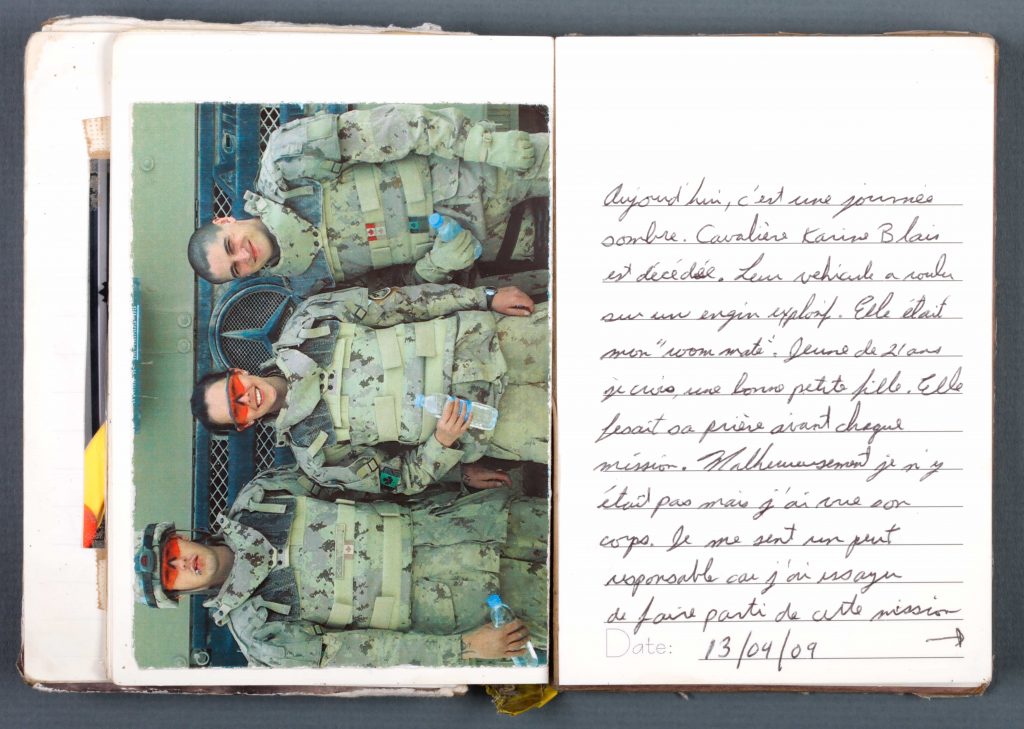 Aujourd'hui, c'est une journée
sombre. Cavalière Karine Blais
est décédée. Leur vehicule a roulu
sur un engin explosif. Elle était
mon "room mate". Jeune de 21 ans
je crois, une bonne petite fille. Elle
fesait sa prière avant chaque
mission. Malheureusement je n'y
était pas mais j'ai vue son
corps. Je me sent un peut
responsable car j'ai essayer
de faire parti de cette mission
Date: 13/04/09